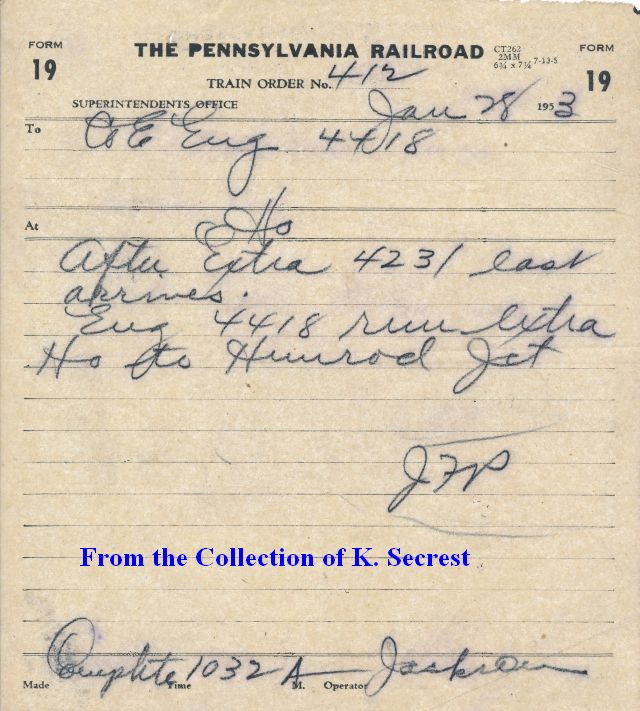 FORM 19
THE PENNSYLVANIA RAILROAD
CT262
2MM
6¾ x 7¼ 7-13-5
FORM 19
TRAIN ORDER No. 412
SUPERINTENDENTS OFFICE Jan 28 1953
To C&E Eng 4418
At Ho
After Extra 4231 east
arrives.
Eng 4418 run extra
Ho to Himrod Jct
JFP
From the Collection of K. Secrest
Complete 1032 A Jackson
Made Time M. Operator